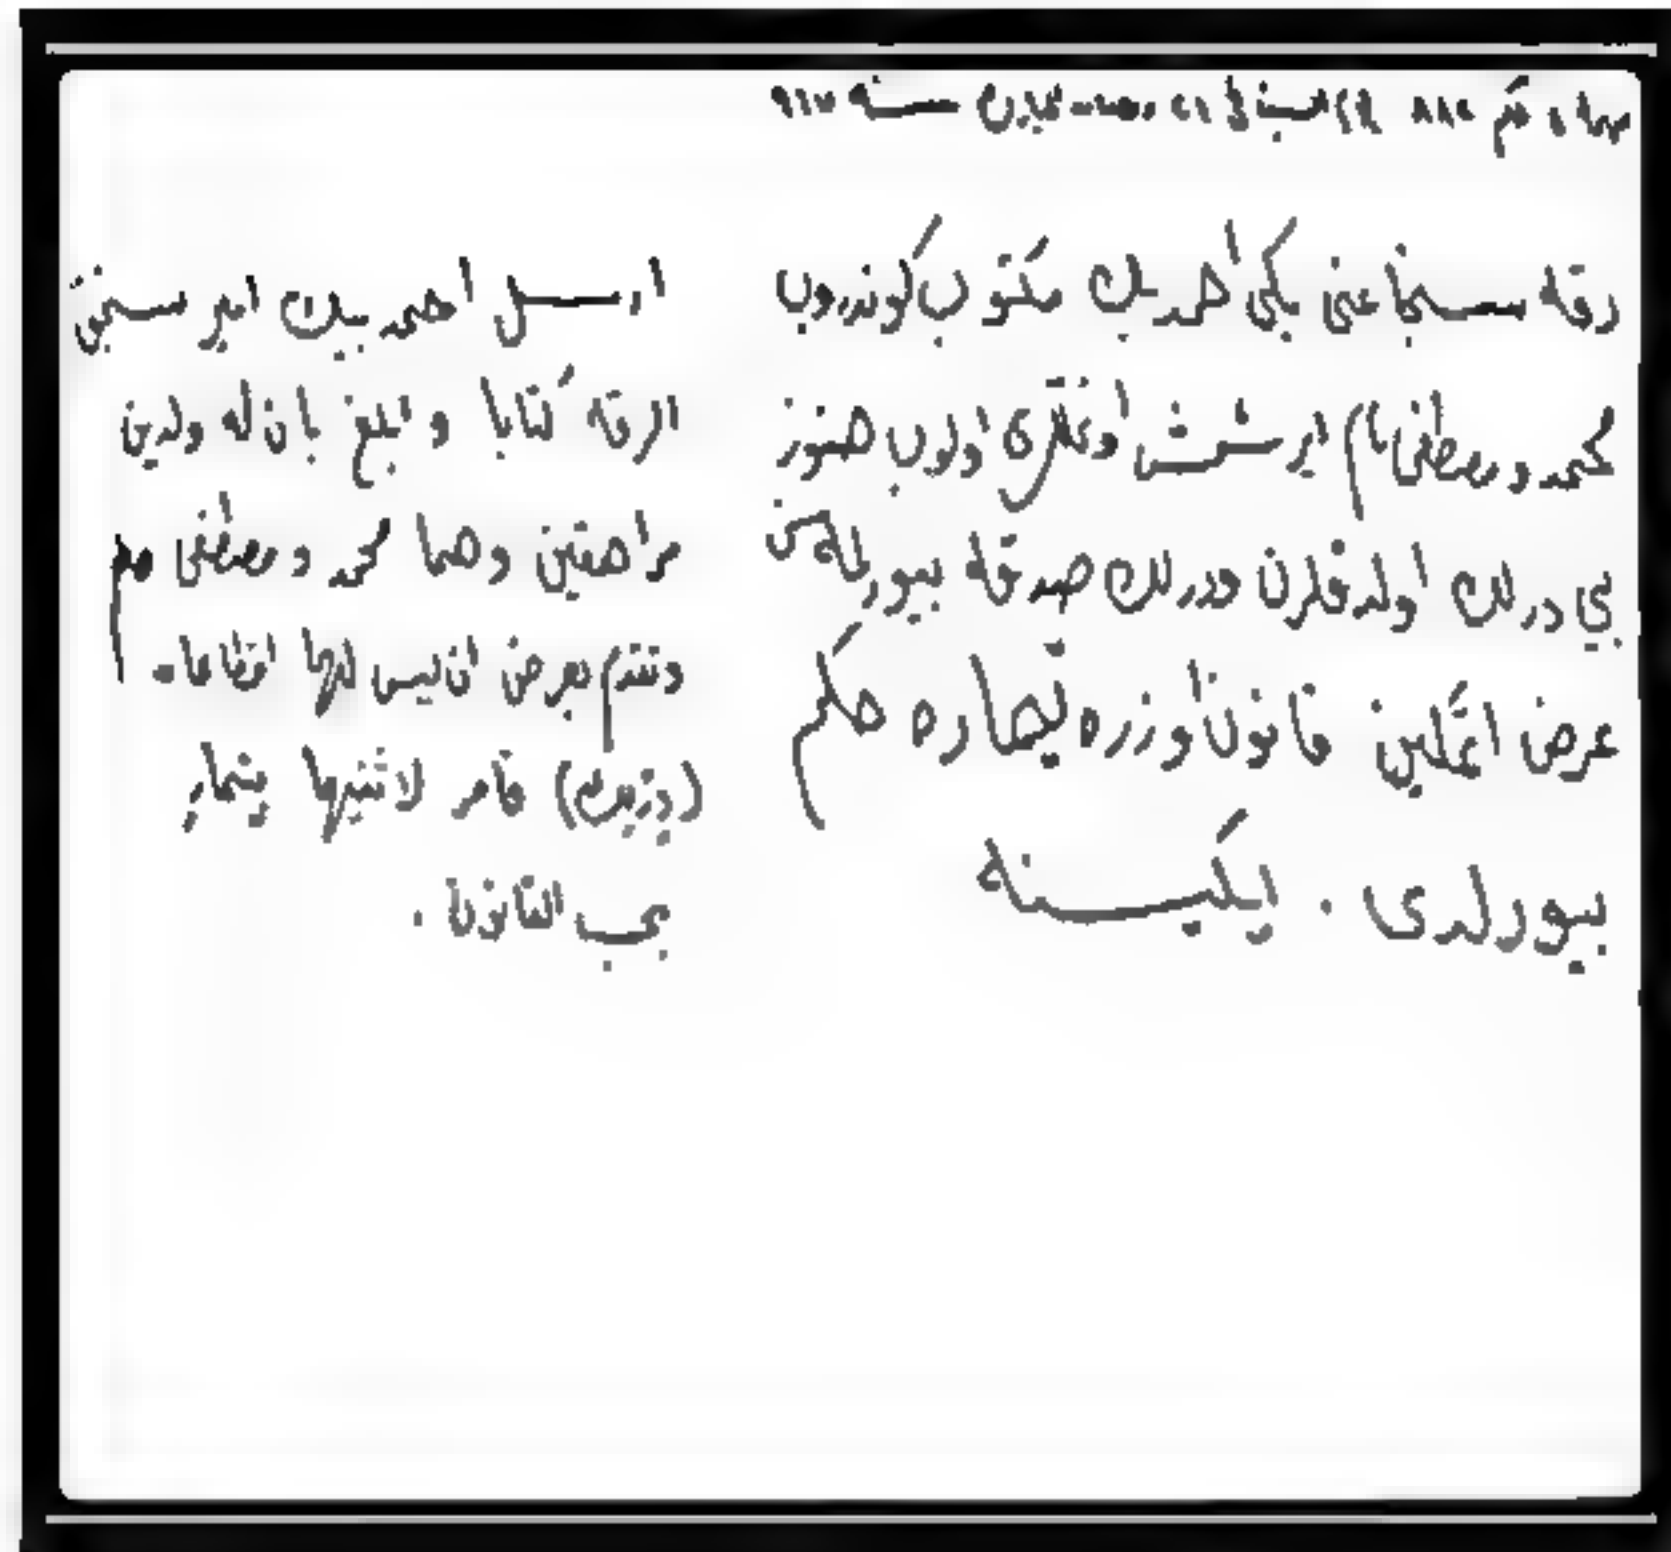 رقم ٨٨٤ السبت في ٢١ رمضان سنة ٩٦٧
رقه سنجاغنى بكى احمد بك مكتوب كوندروب
محمد ومصطفى نام ايرشمش اوغللرى اولوب هنوز
بى درلك اولدقلرن ودرلك صدقه بيورلمسن
عرض اتمكين قانون اوزره تيماره حكم
بيورلدى . ايكيسنه
ارسل احمد بيك امير سنجق
الرقه كتابا وابلغ بان له ولدين
مراهقين وهما محمد ومصطفى
وتقدم بعرض ان ليس لهما اقطاعا .
(ديرلك) فامر لاثنيهما بتيمار
بحسب القانون .